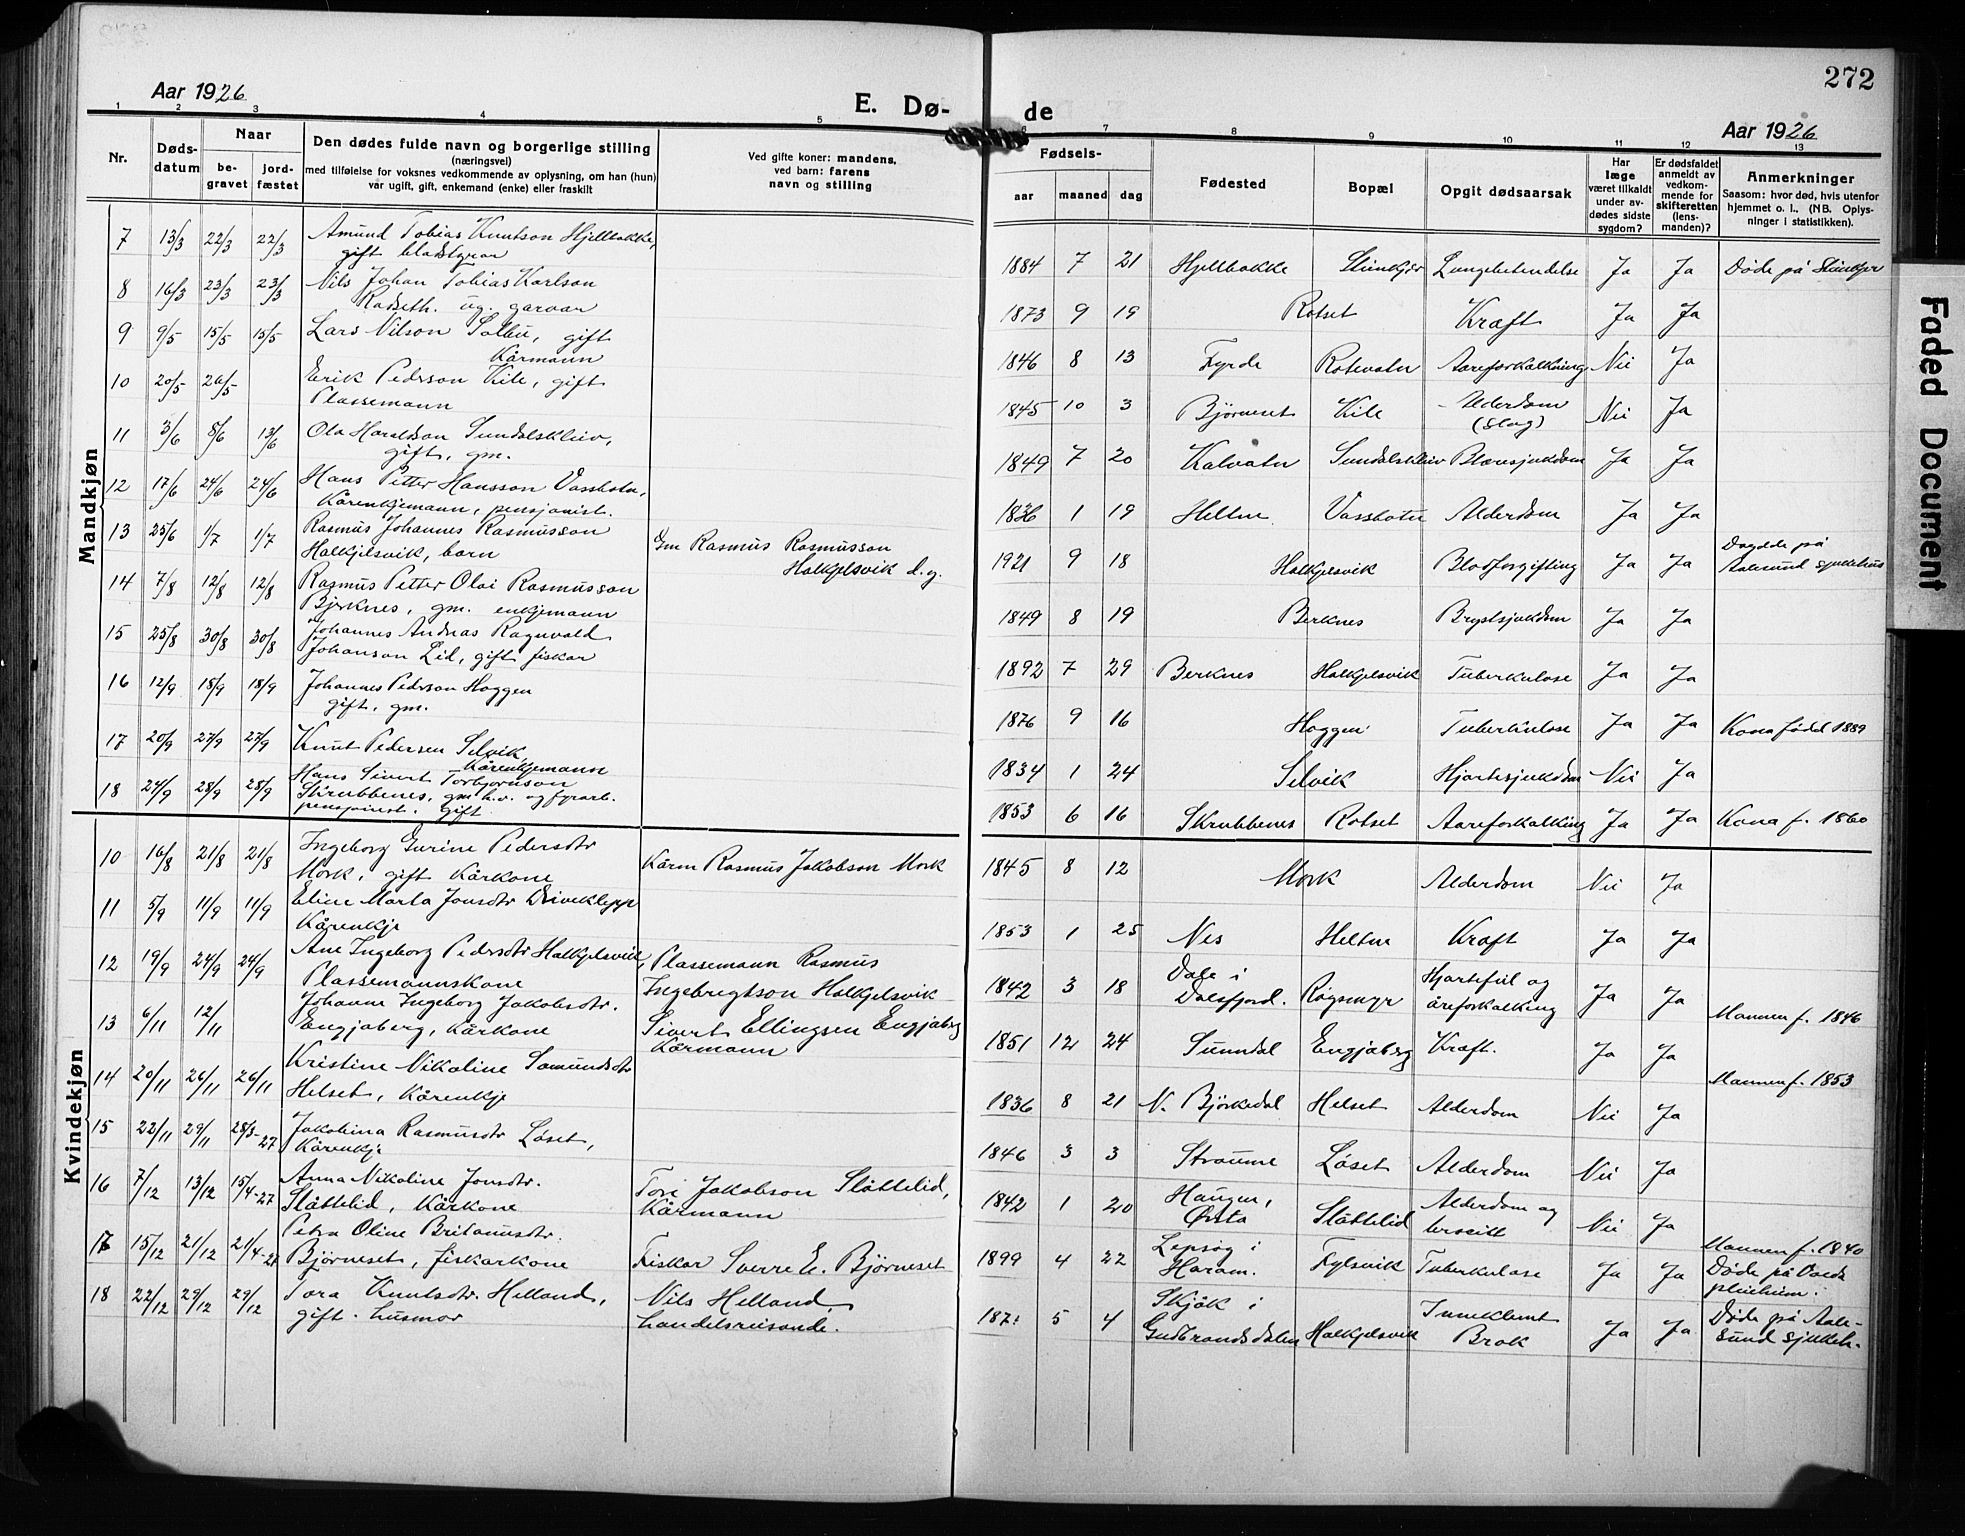 272
Aar 1926
E. Dø-
de
Aar 1926
1 2 3 4 5 6 7 8 9 10 11 12 13
Nr.
Døds-
datum
Naar
be-
gravet
jord-
fæstet
Den dødes fulde navn og borgerlige stilling
(næringsvei)
med tilføielse for voksnes vedkommende av oplysning, om han (hun)
var ugift, gift, enkemand (enke) eller fraskilt
Ved gifte koner: mandens,
ved barn: farens
navn og stilling
Fødsels-
aar maaned dag
Fødested
Bopæl
Opgit dødsaarsak
Har
læge
været tilkaldt
under av-
dødes sidste
sygdom?
Er dødsfaldet
anmeldt av
vedkom-
mende for
skifteretten
(lens-
manden)?
Anmerkninger
Saasom: hvor død, hvis utenfor
hjemmet o. l., (NB. Oplys-
ninger i statistikken).
Mandkjøn
7 13/3 22/3 22/3 Amund Tobias Knutson Hjellbakke,
gift
1884 7 21 Hjellbakke Lungebetendelse Ja Ja Døde på
8 16/3 23/3 23/3 Nils Johan Tobias Karlson
Rødseth. ug. garvar
1873 9 19 Rotset Kræft Ja Ja
9 9/5 15/5 15/5 Lars Nilson Solbu, gift
Kårmann
1846 8 13 Fyrde Rotevatn Aareforkalkning Nei Ja
10 20/5 26/5 Erik Pedrson Kile, gift
Plassemann
1845 10 3 Bjørneset Kile Alderdom
(slag) Nei Ja
11 3/6 8/6 13/6 Ola Haraldson Sundalskleiv,
gift, gm.
1849 7 20 Kalvatn Sundalskleiv Blæresjukdom Ja Ja
12 17/6 24/6 24/6 Hans Petter Hansson Vassbotn,
Kårenkjemann, pensjonist.
1836 1 19 Heltne Vassbotn Alderdom Ja Ja
13 25/6 1/7 1/7 Rasmus Johannes Rasmusson
Halkjelsvik, barn
Gm Rasmus Rasmusson
Halkjelsvik d.y.
1921 9 18 Halkjelsvik Blodforgifting Ja Ja Døydde på
Aalesund sjukehus
14 7/8 12/8 12/8 Rasmus Petter Olai Rasmusson
Bjerknes, gm. enkjemann
1849 8 19 Berknes Brystsjukdom Ja Ja
15 25/8 30/8 30/8 Johannes Andreas Ragnvald
Johanson Lid, gift fiskar
1892 7 29 Berknes Halkjelsvik Tuberkulose Ja Ja
16 12/9 18/9 18/9 Johannes Pedrson Haggen
gift, gm.
1876 9 16 Haggen Tuberkulose Ja Ja Kona fødd 1889
17 20/9 27/9 27/9 Knut Pedersen Selvik
Kårenkjemann
1834 1 24 Selvik Hjartesjukdom Nei Ja
18 24/9 28/9 28/9 Hans Sivert Torbjørnson
Skrubbenes, gm h.v. og fyrarb.
pensjonist. gift
1853 6 16 Skrubbenes Rotset Aareforkalking Ja Ja Kona f. 1860
Kvindekjøn
10 16/8 21/8 21/8 Ingeborg Gurine Pedersdtr
Mork, gift Kårkone
Kårm Rasmus Jakobson Mork
1845 8 12 Mork Alderdom Nei Ja
11 5/9 11/9 11/9 Eline Marta Jonsdtr Driveklepp
Kårenkje
1853 1 25 Nes Heltne Kræft Ja Ja
12 19/9 24/9 24/9 Ane Ingeborg Pedersdtr Halkjelsvik,
Plassemannskone
Plassemann Rasmus
Ingebregtson Halkjelsvik
1842 3 18 Dale i
Dalsfjord. Røgsmyr Hjartefeil og
åreforkalking Ja Ja Mannen f. 1846
13 6/11 12/11 Johanne Ingeborg Jakobsdtr.
Engjaberg, Kårkone
Sivert Ellingsen Engjaberg
Kårmann
1851 12 24 Sunndal Engjaberg Kræft. Ja Ja
Mannen f. 1853
14 20/11 26/11 26/11 Kristine Nikoline Samundsdtr
Helset, Kårenkje
1836 8 21 N. Bjørkedal Helset Alderdom Nei Ja
15 22/11 29/11 28/3-27 Jakobina Rasmusdtr Løset,
Kårenkje
1846 3 3 Straume Løset Alderdom Nei Ja
16 7/12 13/12 15/4-27 Anna Nikoline Jonsdtr.
Slåttelid, Kårkone
Tore Jakobson Slåttelid,
Kårmann
1842 1 20 Haugen,
Ørsta Slåttelid Alderdom og Nei Ja
Mannen f. 1840
17 15/12 21/12 21/4-27 Petra Oline Britanusdtr.
Bjørneset, fiskarkone
Fiskar Sverre E. Bjørneset
1899 4 22 Lepsøy i
Haram. Fylsvik Tuberkulose Ja Ja Døde på Voldo
pleiehem.
18 22/12 29/12 29/12 Tora Knutsdtr. Helland,
gift. husmor
Nils Helland,
handelsreisande.
187 5 4 Skjåk i
Gudbrandsdalen Halkjelsvik Inneklemt
Brok Ja Ja Døde på Aale-
sund sjukeh.
Faded Document